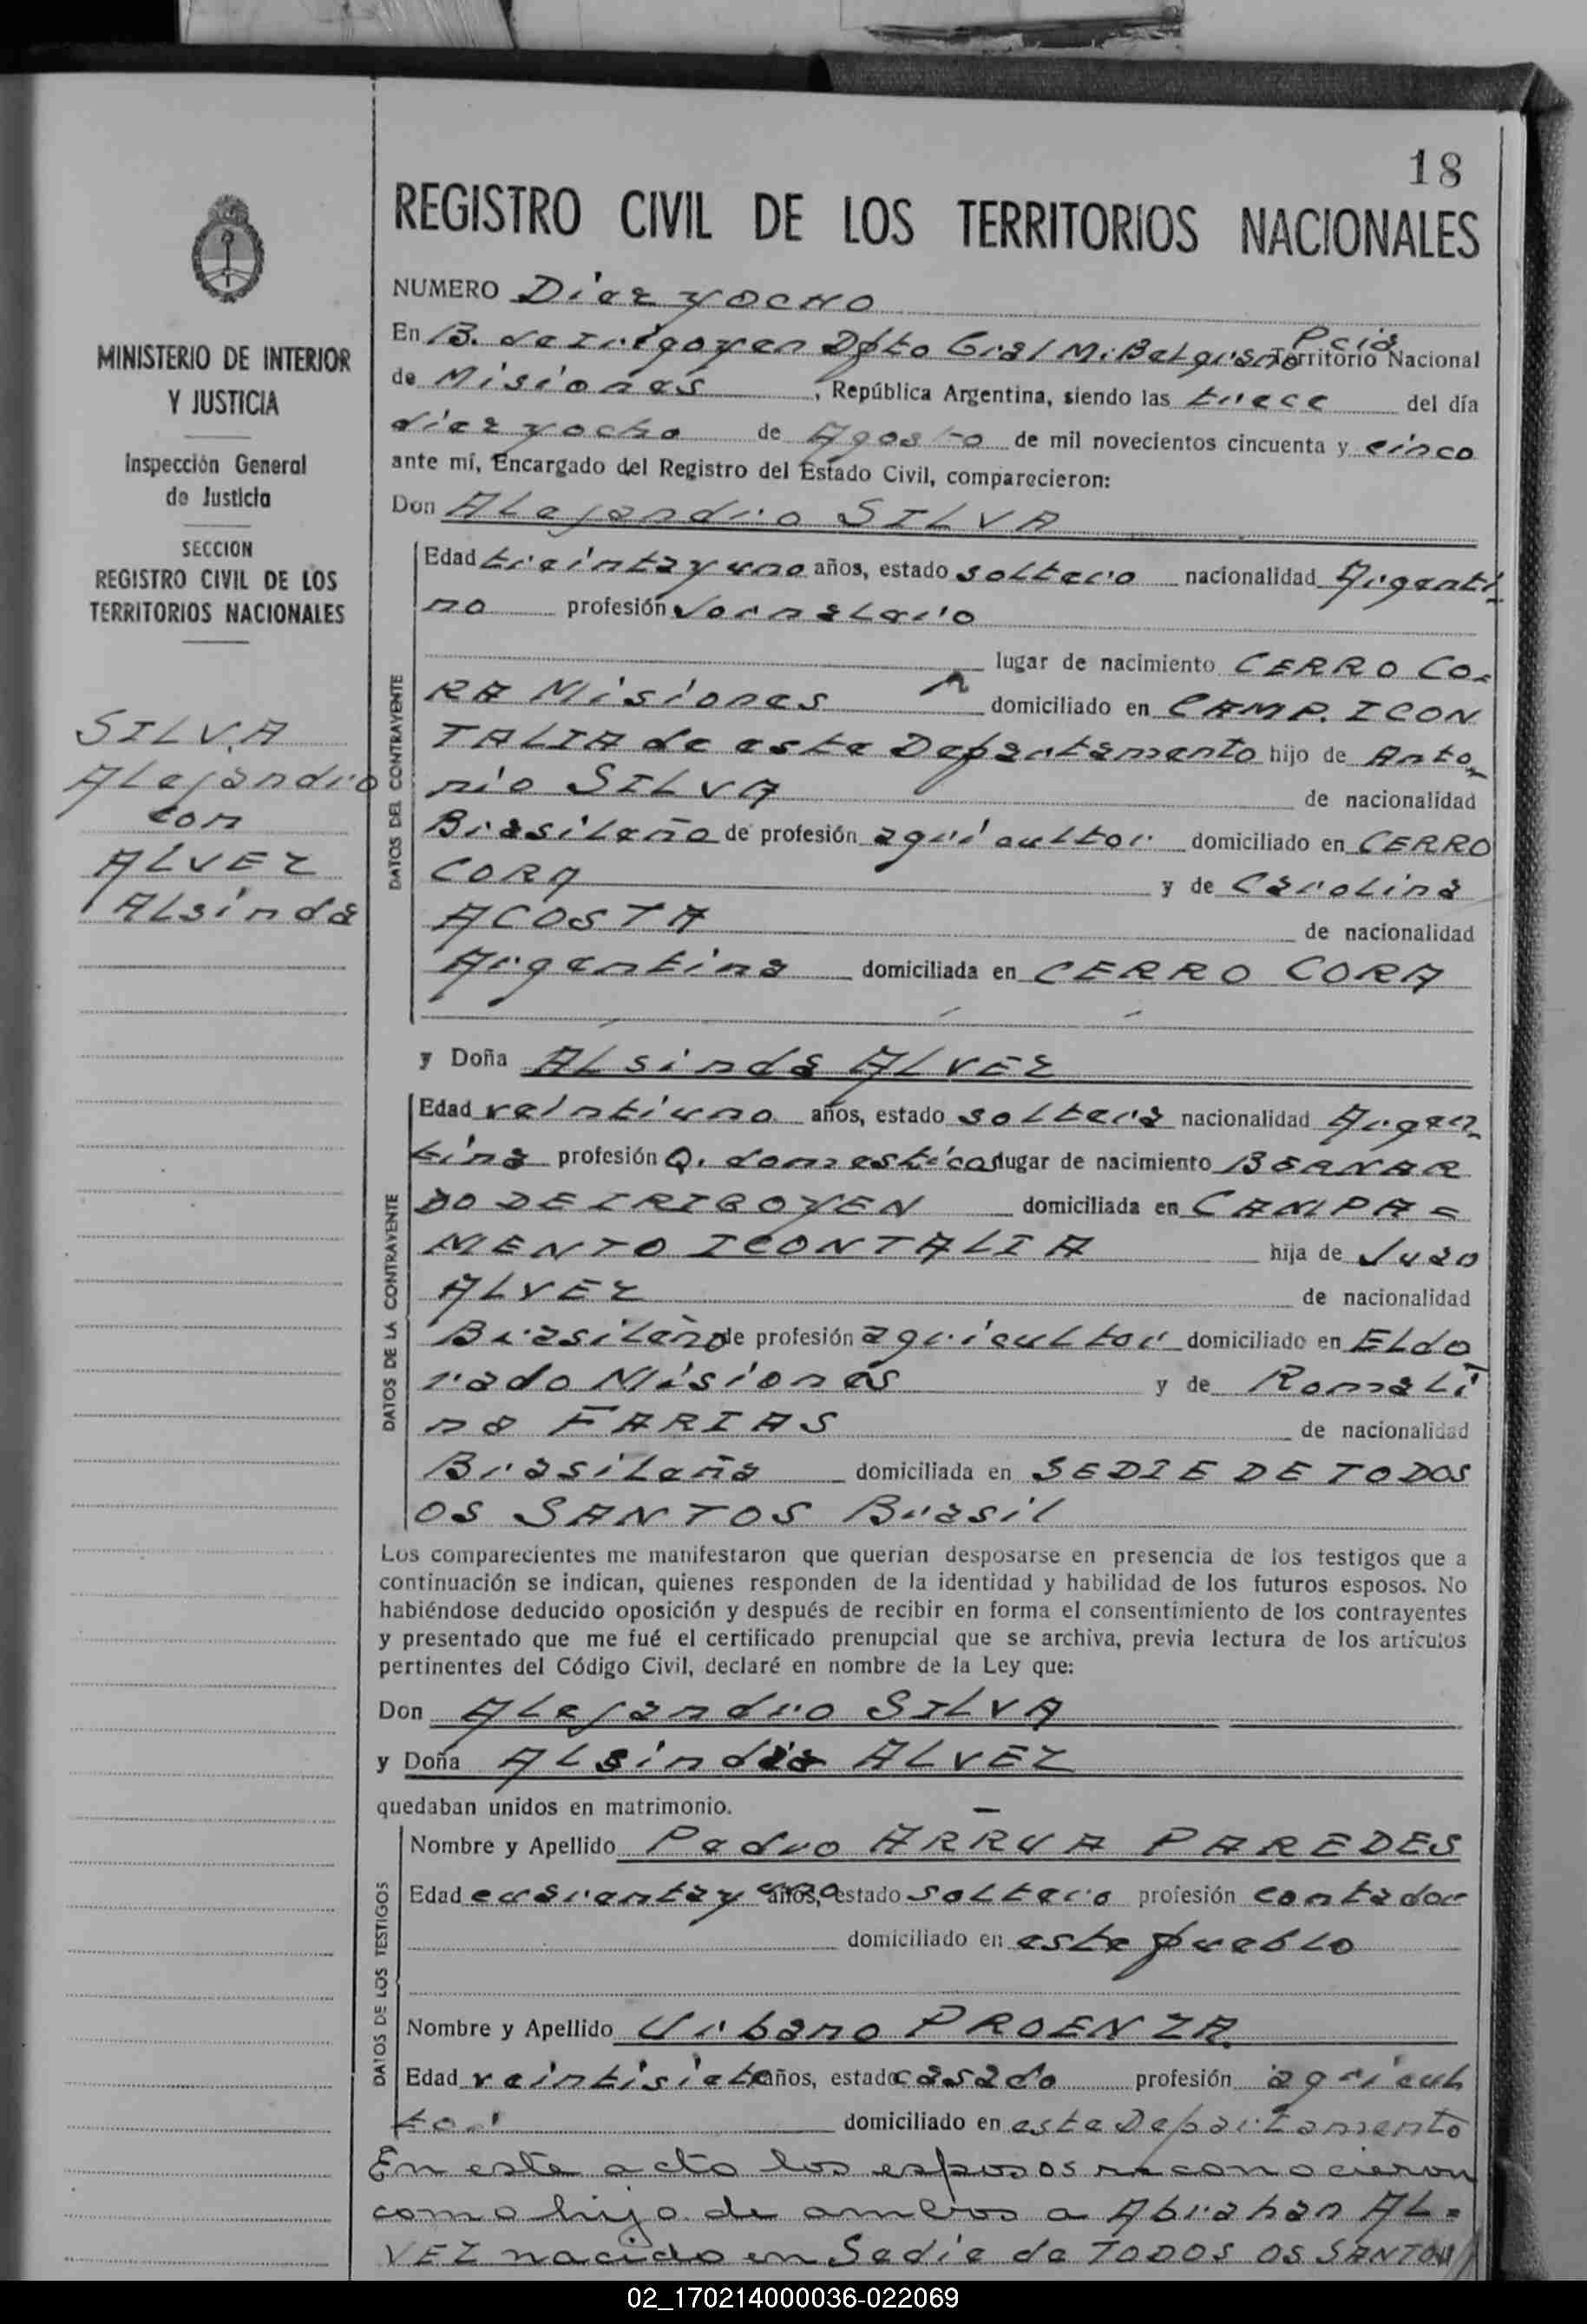 18
REGISTRO CIVIL DE LOS TERRITORIOS NACIONALES
MINISTERIO DE INTERIOR
Y JUSTICIA
Inspección General
de Justicia
SECCION
REGISTRO CIVIL DE LOS
TERRITORIOS NACIONALES
SILVA
Alejandro
con
ALVEZ
Alsinda
NUMERO Diez y OCHO
Pcia
En B. de Irigoyen Dpto Gral M. Belgrano Territorio Nacional
de Misiones, República Argentina, siendo las trece del día
diez y ocho de Agosto de mil novecientos cincuenta y cinco
ante mí, Encargado del Registro del Estado Civil, comparecieron:
Don Alejandro SILVA
DATOS DEL CONTRAYENTE
Edad treinta y uno años, estado soltero nacionalidad Argenti-
no profesión Jornalero
lugar de nacimiento CERRO CO-
RA Misiones domiciliado en CAMP. ICON
TALIA de este Departamento hijo de Anto-
nio SILVA de nacionalidad
Brasileño de profesión agricultor domiciliado en CERRO
CORA y de Carolina
ACOSTA de nacionalidad
Argentina domiciliada en CERRO CORA
y Doña Alsinda ALVEZ
DATOS DE LA CONTRAYENTE
Edad veintiuno años, estado soltera nacionalidad Argen-
tina profesión Q. domesticos lugar de nacimiento BERNAR
DO DE IRIGOYEN domiciliada en CAMPA=
MENTO ICONTALIA hija de Juan
ALVEZ de nacionalidad
Brasileño de profesión agricultor domiciliado en Eldo
rado Misiones y de Romali
na FARIAS de nacionalidad
Brasileña domiciliada en SEDIE DE TODOS
OS SANTOS Brasil
Los comparecientes me manifestaron que querían desposarse en presencia de los testigos que a
continuación se indican, quienes responden de la identidad y habilidad de los futuros esposos. No
habiéndose deducido oposición y después de recibir en forma el consentimiento de los contrayentes
y presentado que me fué el certificado prenupcial que se archiva, previa lectura de los artículos
pertinentes del Código Civil, declaré en nombre de la Ley que:
Don Alejandro SILVA
y Doña Alsinda ALVEZ
quedaban unidos en matrimonio.
DATOS DE LOS TESTIGOS
Nombre y Apellido Pedro ARRUA PAREDES
Edad cuarenta y uno años, estado soltero profesión contador
domiciliado en este pueblo
Nombre y Apellido Urbano PROENZA
Edad veintisiete años, estado casado profesión agricul
tor domiciliado en este Departamento
En este acto los esposos reconocieron
como hijo de ambos a Abrahan AL=
VEZ nacido en Sedie de TODOS OS SANTOS
02_170214000036-022069